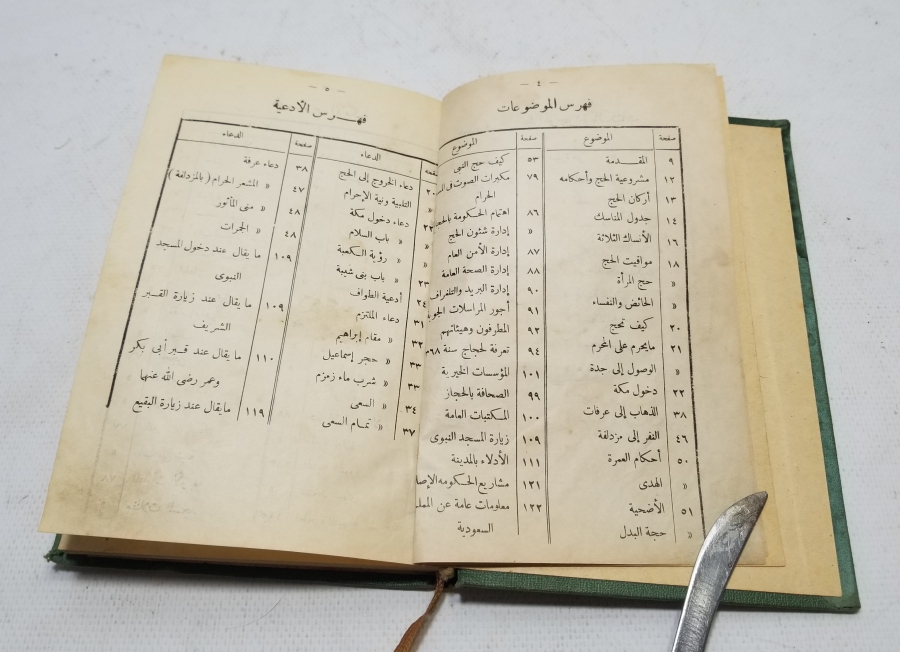 — ٤ —
فهرس الموضوعات
صفحة الموضوع
٩ المقـــدمة
١٢ مشروعية الحج وأحكامه
١٣ أركان الحج
١٤ جدول المناسك
١٦ الأنساك الثلاثة
١٨ مواقيت الحج
« حج المرأة
« الحائض والنفساء
٢٠ كيف تحج
٢١ مايحرم على المحرم
« الوصول إلى جدة
٢٢ دخول مكة
٣٨ الذهاب إلى عرفات
٤٦ النفر إلى مزدلفة
٥٠ أحكام العمرة
« الهدى
٥١ الأضحية
« حجة البدل
صفحة الموضوع
٥٣ كيف حج النبى
٧٩ مكبرات الصوت فى
الحرام
٨٦ اهتمام الحكومة
« إدارة شئون الحج
٨٧ إدارة الأمن العام
٨٨ إدارة الصحة العامة
٩٠ إدارة البريد والتلغراف
٩١ أجور المراسلات
٩٢ المطوفون وهيئاتهم
٩٤ تعرفة لحجاج سنة
١٠١ المؤسسات الخيرية
٩٩ الصحافة بالحجاز
١٠٠ المكتبات العامة
١٠٩ زيارة المسجد النبوى
١١١ الأدلاء بالمدينة
١٢١ مشاريع الحكومه
١٢٢ معلومات عامة عن
السعودية
— ٥ —
فهـــرس الأدعية
الدعاء
٢٠ دعاء الخروج إلى الحج
« التلبية ونية الإحرام
دعاء دخول مكة
« « باب السلام
« « رؤية الكعبة
٢٣ « باب بنى شيبة
٢٤ أدعية الطواف
٣١ دعاء الملتزم
٣٢ « مقام إبراهيم
٣٣ « حجر إسماعيل
٣٣ « شرب ماء زمزم
٣٤ « السعى
٣٧ « تمـام السعى
صفحة الدعاء
٣٨ دعاء عرفة
٤٧ « المشعر الحرام ( بالمزدلفة )
٤٨ « منى المأثور
٤٨ « الجمرات
١٠٩ ما يقال عند دخول المسجد
النبوى
١٠٩ ما يقال عند زيارة القـبر
الشريف
١١٠ ما يقال عند قـبر أبى بكر
وعمر رضى الله عنهما
١١٩ مايقال عند زيارة البقيع